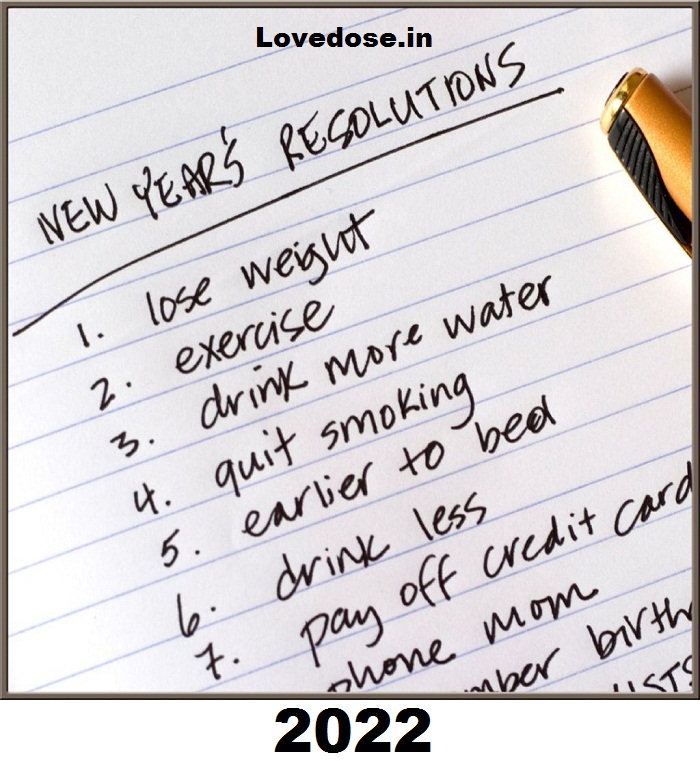 Lovedose.in
NEW YEAR'S RESOLUTIONS
1. lose weight
2. exercise
3. drink more water
4. quit smoking
5. earlier to bed
6. drink less
7. pay off credit card
phone mom
2022